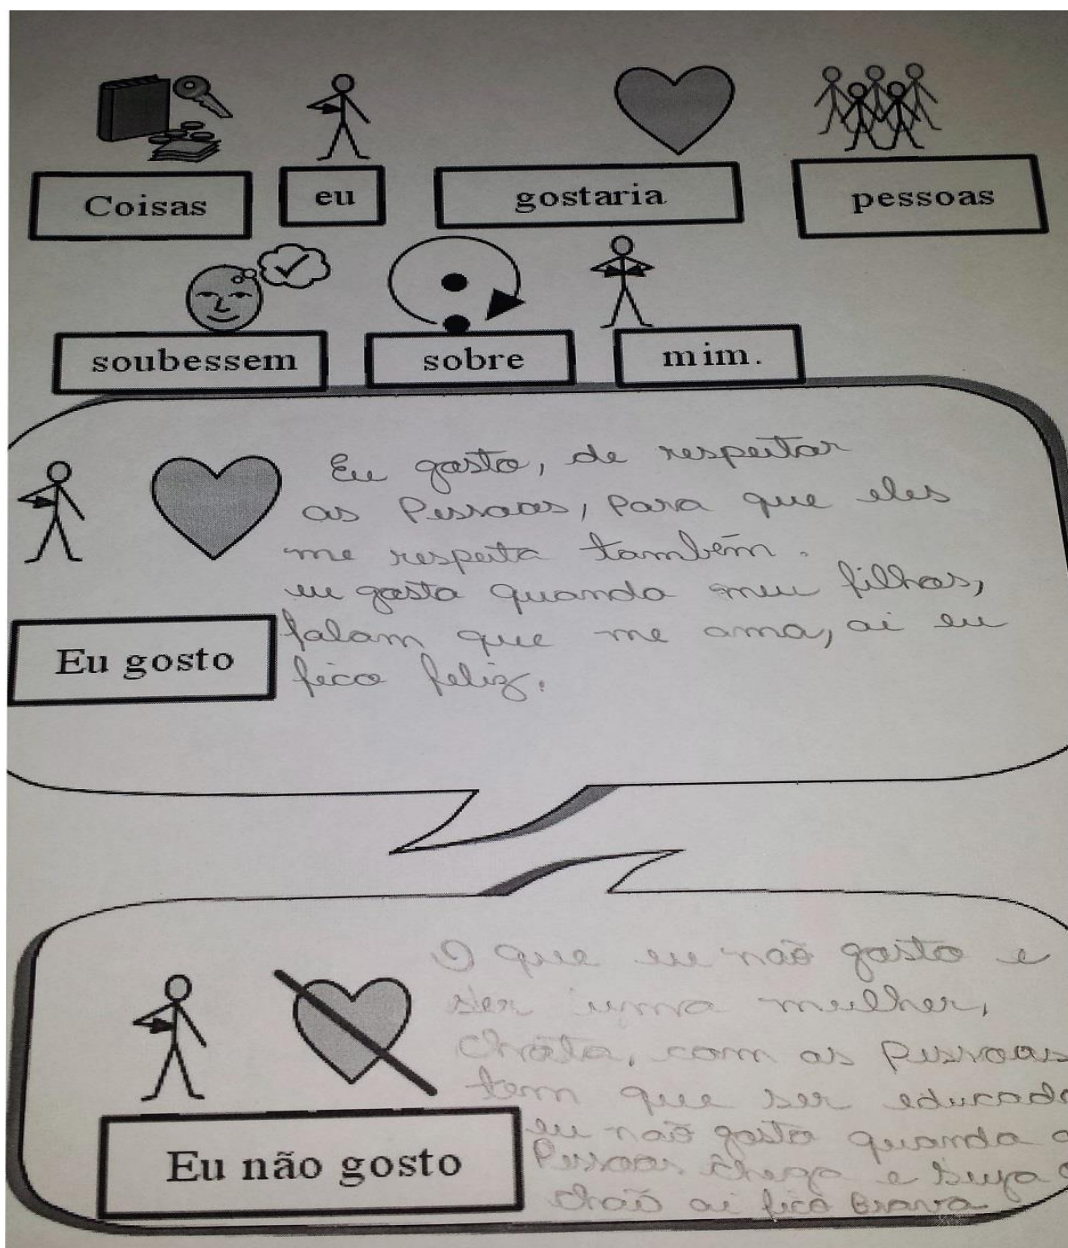 Coisas eu gostaria pessoas
soubessem sobre mim.
Eu gosto, de respeitar
as Pessoas, Para que eles
me respeita também.
eu gosto quando meu filhos,
falam que me ama, ai eu
fico feliz.
Eu gosto
O que eu não gosto e
ser uma mulher,
Chata, com as Pessoas
tem que ser educado
eu não gosto quando a
Pessoas chega e suja o
chão ai fico Brava
Eu não gosto